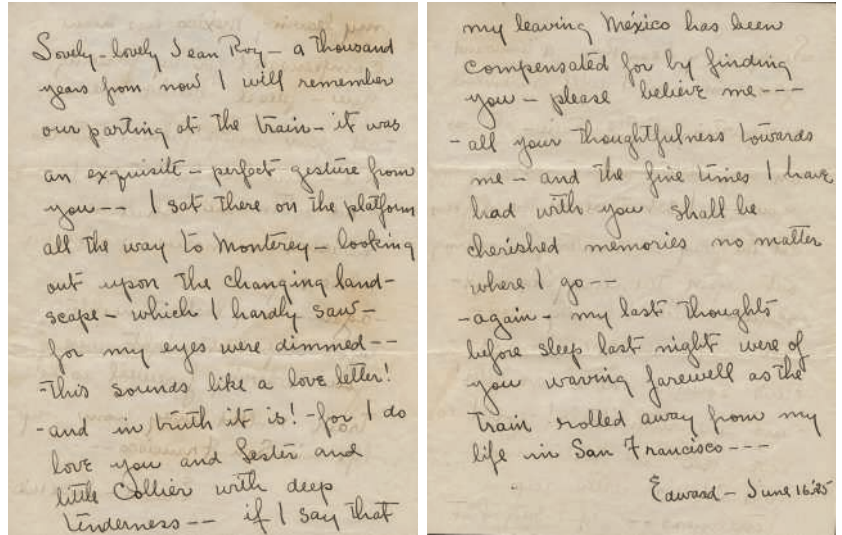 Lovely-lovely Jean Roy - a thousand
years from now I will remember
our parting at the train - it was
an exquisite - perfect gesture from
you -- I sat there on the platform
all the way to Monterey - looking
out upon the changing land-
scape - which I hardly saw -
for my eyes were dimmed --
- This sounds like a love letter!
- and in truth it is! - for I do
love you and Lester and
little Collier with deep
tenderness -- if I say that
my leaving México has been
compensated for by finding
you - please believe me ---
- all your thoughtfulness towards
me - and the fine times I have
had with you shall be
cherished memories no matter
where I go --
- again - my last thoughts
before sleep last night were of
you waving farewell as the
train rolled away from my
life in San Francisco ---
Edward - June 16-'25